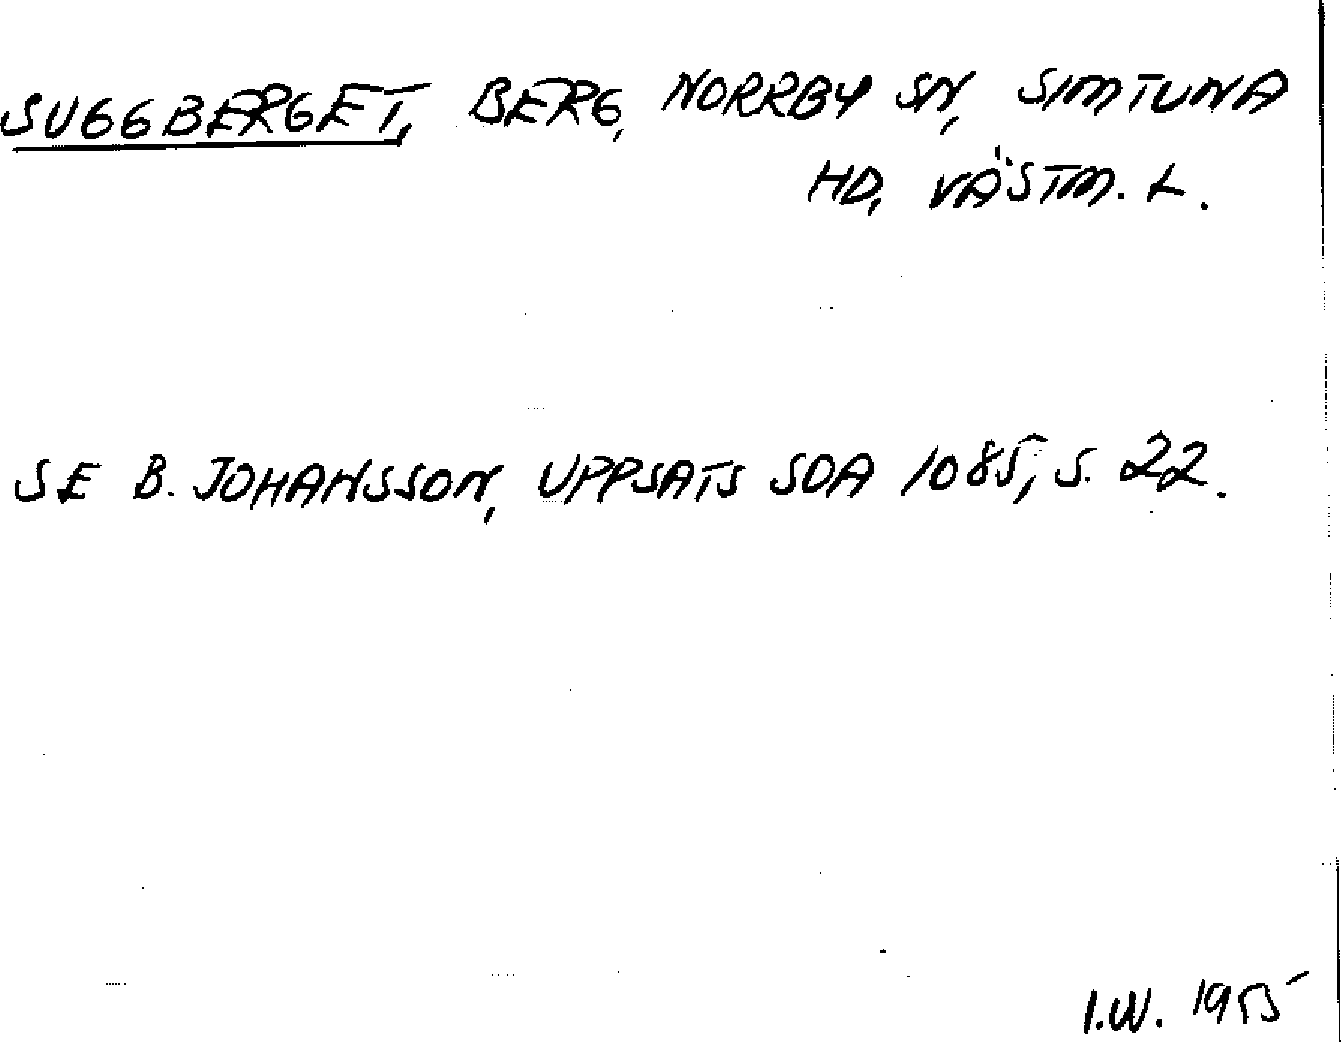 SUGGBERGET, BERG, NORRBY SN, SIMTUNA
HD, VÄSTM. L.
SE B. JOHANSSON, UPPSATS SOA 1085, S. 22.
I.W. 1955